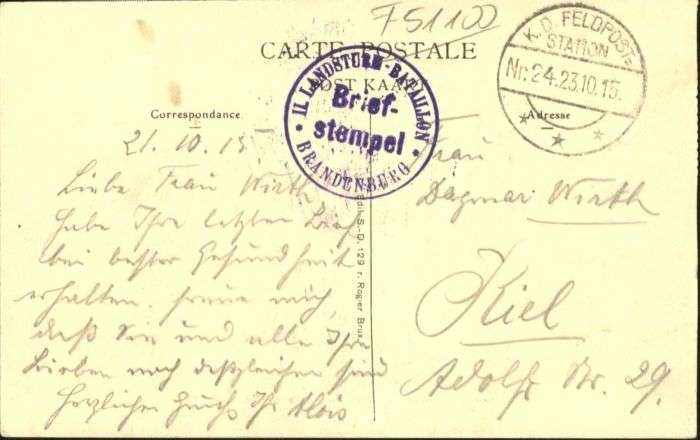 751100
CARTE POSTALE
POST KAART
K.D. FELDPOST=
STATION
Nr. 24. 23.10.15.
II. LANDSTURM-BATAILLON
Brief-
stempel
BRANDENBURG
Correspondance
Adresse
21. 10. 15
Liebe Frau Wirth
habe Ihre letzten Brief
bei bester Gesundheit
erhalten. freue mich,
daß Sie und alle Ihre
Lieben noch desgleichen sind
Herzlichen Gruß Ihr Alois
Edit. S.-D. 129 r. Rogier Brux.
Frau
Dagmar Wirth
Kiel
Adolfs Str. 29.